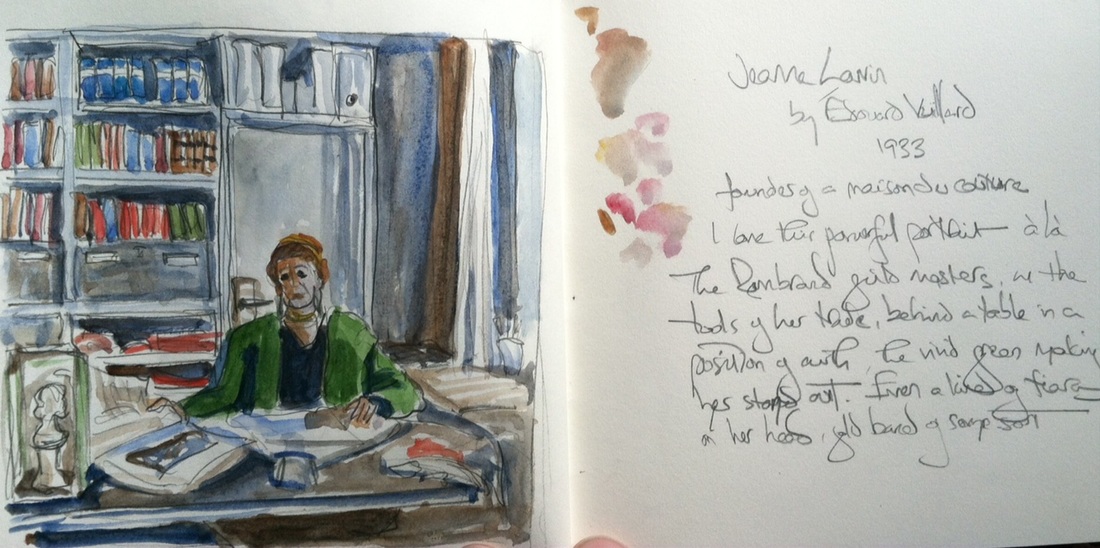 Jeanne Lanvin
by Édouard Vuillard
1933
founder of a maison du couture
I love this powerful portrait à là
The Rembrand guild masters, w the
tools of her trade, behind a table in a
position of auth, the vivid green making
her stand out. Even a kind of tiara
on her head, gold band of some sort